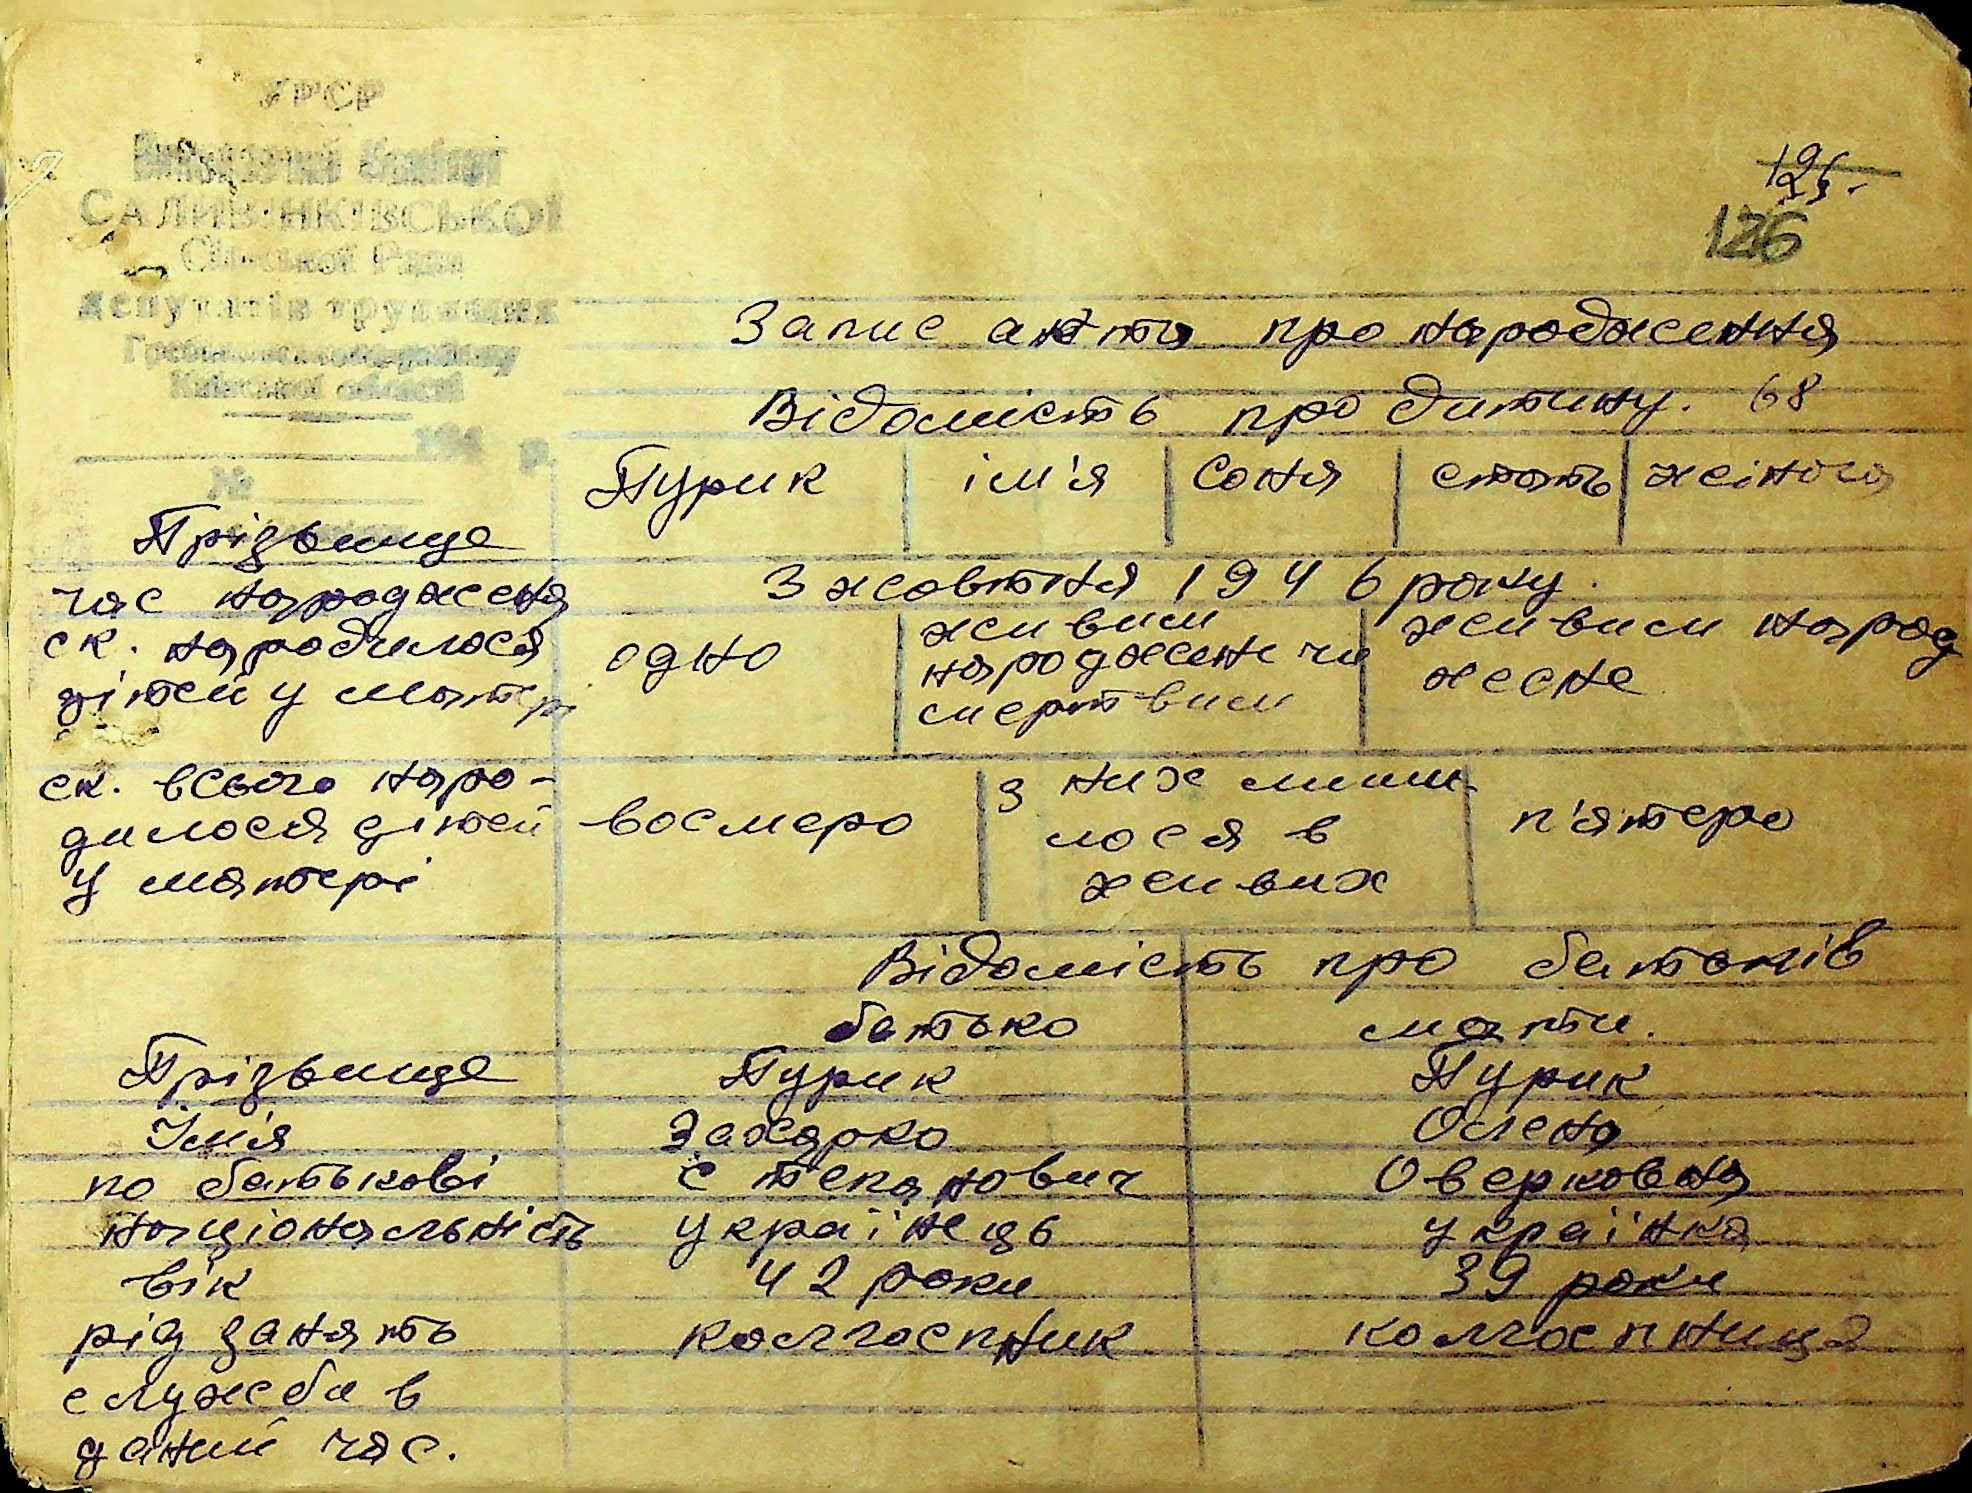 УРСР
Виконавчий Комітет
САЛИВІНКІВСЬКОЇ
Сільської Ради
депутатів трудящих
Гребінківського району
Київської області
194 р.
№
125
126
Запис акта про народження
Відомість про дитину. 68
Прізвище Пурик ім'я Соня стать жіноча
час народженя 3 жовтня 1946 року.
ск. народилося дітей у матері одно живим народжене чи смертвим живим народжене
ск. всього наро-
дилося дітей
у матері
восмеро
з них лиши
лося в
живих
п'ятеро
Відомість про батьків
батько мати.
Прізвище Пурик Пурик
Ім'я Захарко Олена
по батькові Степанович Оверковна
національність українець українка
вік 42 роки 39 роки
рід занять колгоспник колгоспница
служба в
даний час.